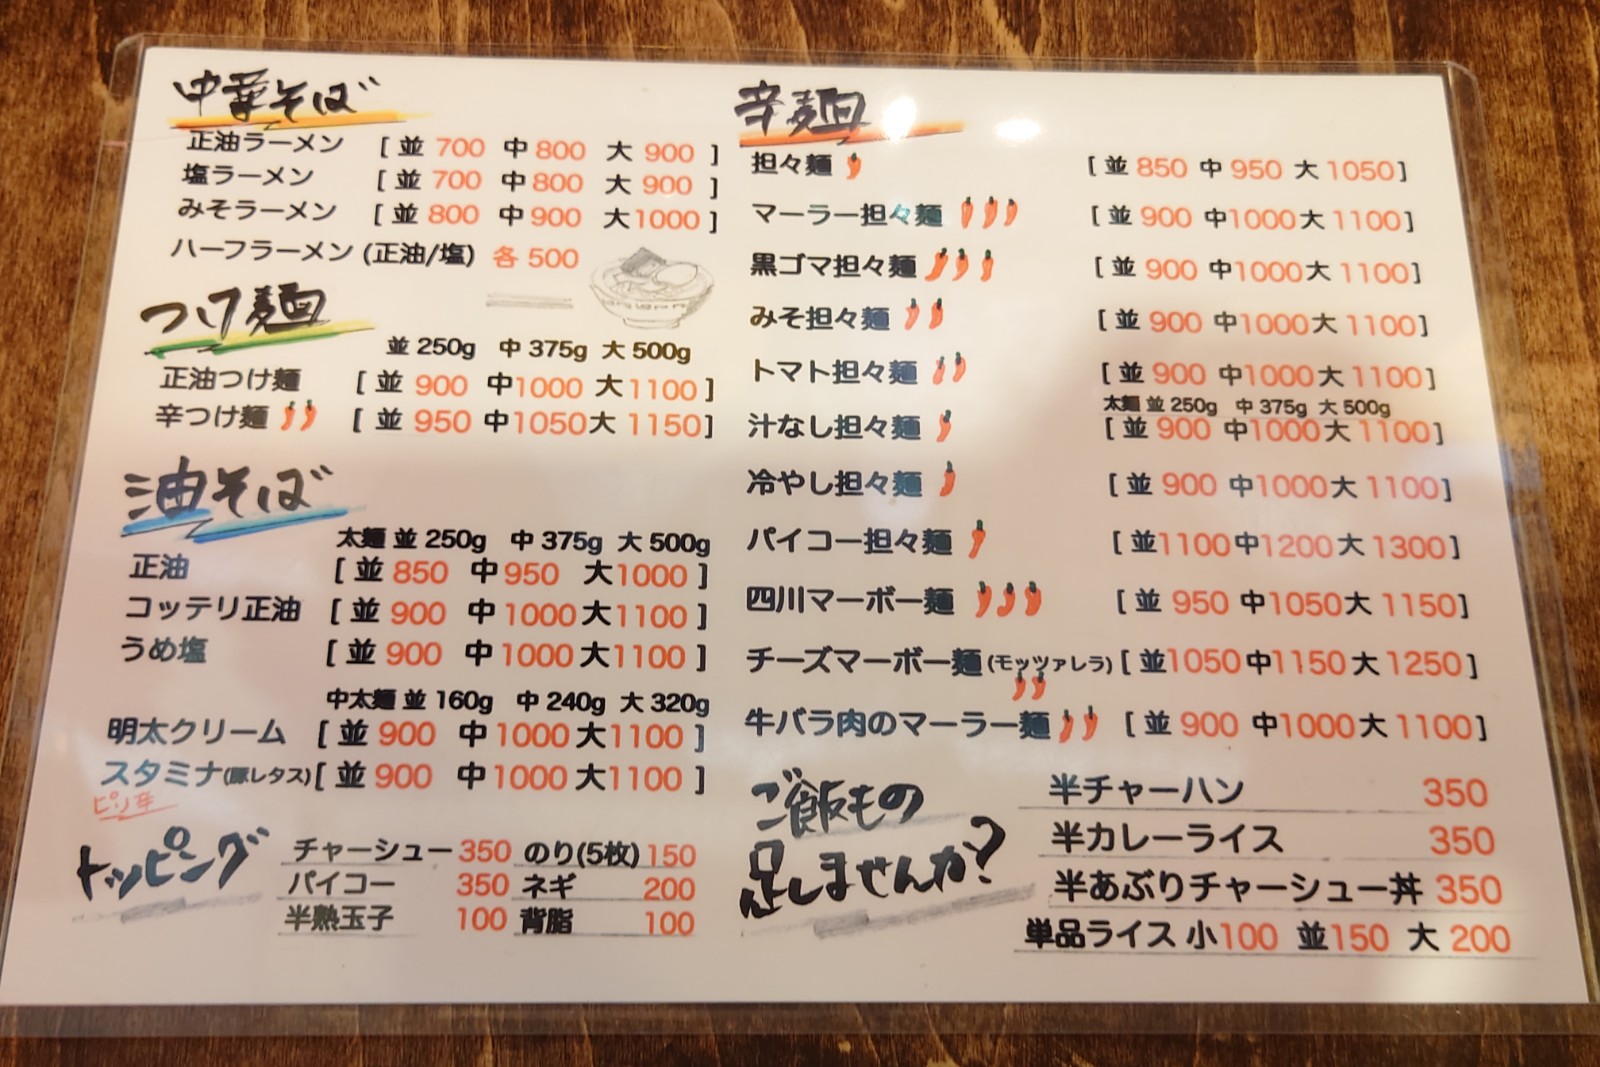 中華そば
正油ラーメン [ 並 700 中 800 大 900 ]
塩ラーメン [ 並 700 中 800 大 900 ]
みそラーメン [ 並 800 中 900 大 1000 ]
ハーフラーメン (正油/塩) 各 500
つけ麺
並 250g 中 375g 大 500g
正油つけ麺 [ 並 900 中 1000 大 1100 ]
辛つけ麺 [ 並 950 中 1050 大 1150 ]
油そば
太麺 並 250g 中 375g 大 500g
正油 [ 並 850 中 950 大 1000 ]
コッテリ正油 [ 並 900 中 1000 大 1100 ]
うめ塩 [ 並 900 中 1000 大 1100 ]
中太麺 並 160g 中 240g 大 320g
明太クリーム [ 並 900 中 1000 大 1100 ]
スタミナ(豚レタス) [ 並 900 中 1000 大 1100 ]
ピリ辛
トッピング
チャーシュー 350 のり(5枚) 150
パイコー 350 ネギ 200
半熟玉子 100 背脂 100
辛麺
担々麺 [ 並 850 中 950 大 1050 ]
マーラー担々麺 [ 並 900 中 1000 大 1100 ]
黒ゴマ担々麺 [ 並 900 中 1000 大 1100 ]
みそ担々麺 [ 並 900 中 1000 大 1100 ]
トマト担々麺 [ 並 900 中 1000 大 1100 ]
太麺 並 250g 中 375g 大 500g
汁なし担々麺 [ 並 900 中 1000 大 1100 ]
冷やし担々麺 [ 並 900 中 1000 大 1100 ]
パイコー担々麺 [ 並 1100 中 1200 大 1300 ]
四川マーボー麺 [ 並 950 中 1050 大 1150 ]
チーズマーボー麺 (モッツァレラ) [ 並 1050 中 1150 大 1250 ]
牛バラ肉のマーラー麺 [ 並 900 中 1000 大 1100 ]
ご飯もの
足しませんか?
半チャーハン 350
半カレーライス 350
半あぶりチャーシュー丼 350
単品ライス 小 100 並 150 大 200